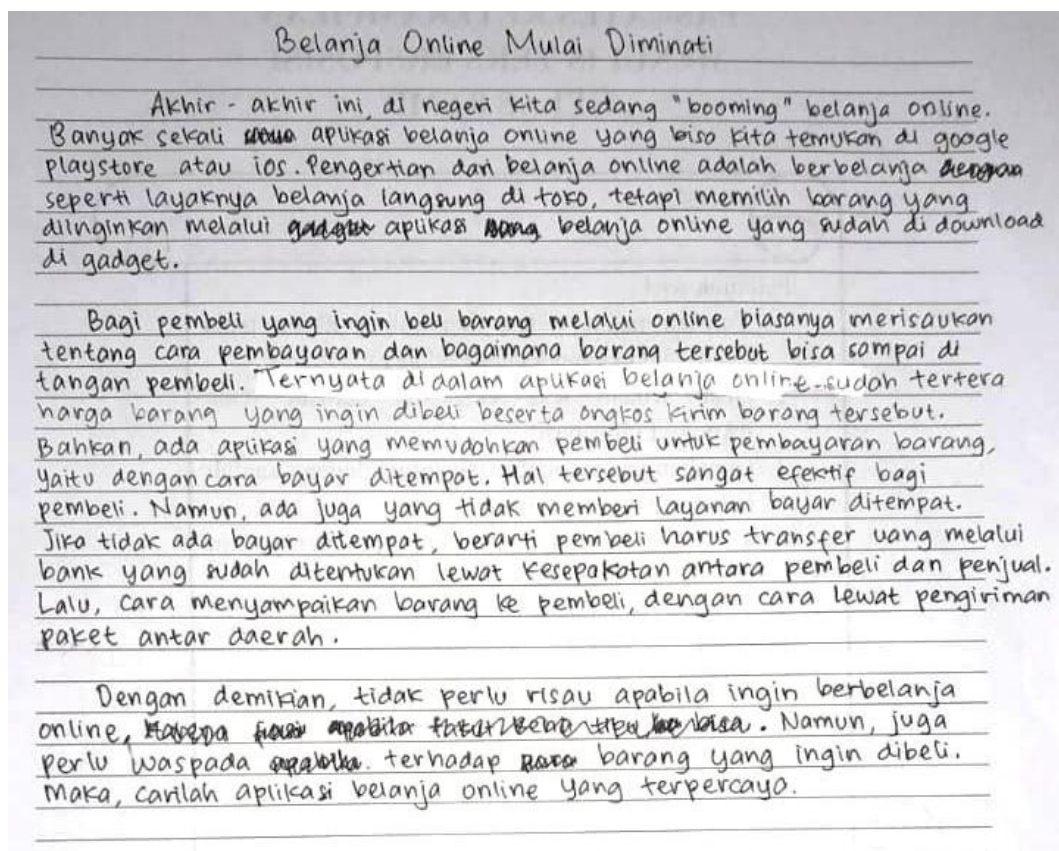 Belanja Online Mulai Diminati
Akhir - akhir ini, di negeri kita sedang "booming" belanja online.
Banyak sekali aplikasi belanja online yang bisa kita temukan di google
playstore atau ios. Pengertian dari belanja online adalah berbelanja
seperti layaknya belanja langsung di toko, tetapi memilih barang yang
diinginkan melalui aplikasi belanja online yang sudah di download
di gadget.
Bagi pembeli yang ingin beli barang melalui online biasanya merisaukan
tentang cara pembayaran dan bagaimana barang tersebut bisa sampai di
tangan pembeli. Ternyata di dalam aplikasi belanja online sudah tertera
harga barang yang ingin dibeli beserta ongkos kirim barang tersebut.
Bahkan, ada aplikasi yang memudahkan pembeli untuk pembayaran barang,
yaitu dengan cara bayar ditempat. Hal tersebut sangat efektif bagi
pembeli. Namun, ada juga yang tidak memberi layanan bayar ditempat.
Jika tidak ada bayar ditempat, berarti pembeli harus transfer uang melalui
bank yang sudah ditentukan lewat kesepakatan antara pembeli dan penjual.
Lalu, cara menyampaikan barang ke pembeli, dengan cara lewat pengiriman
paket antar daerah.
Dengan demikian, tidak perlu risau apabila ingin berbelanja
online. Namun, juga
perlu waspada terhadap barang yang ingin dibeli.
Maka, carilah aplikasi belanja online yang terpercaya.